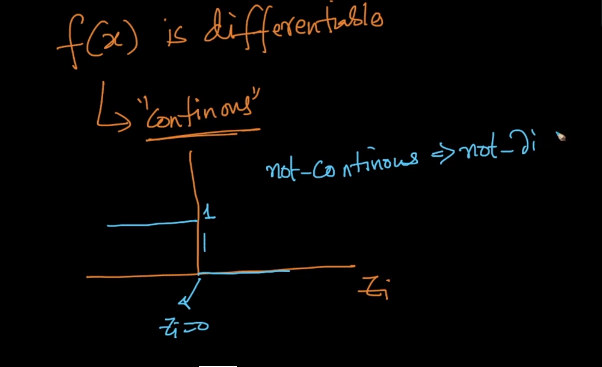 f(x) is differentiable
↳ "continous"
not-continous ⇒ not-di
1
Zi
Zi=0